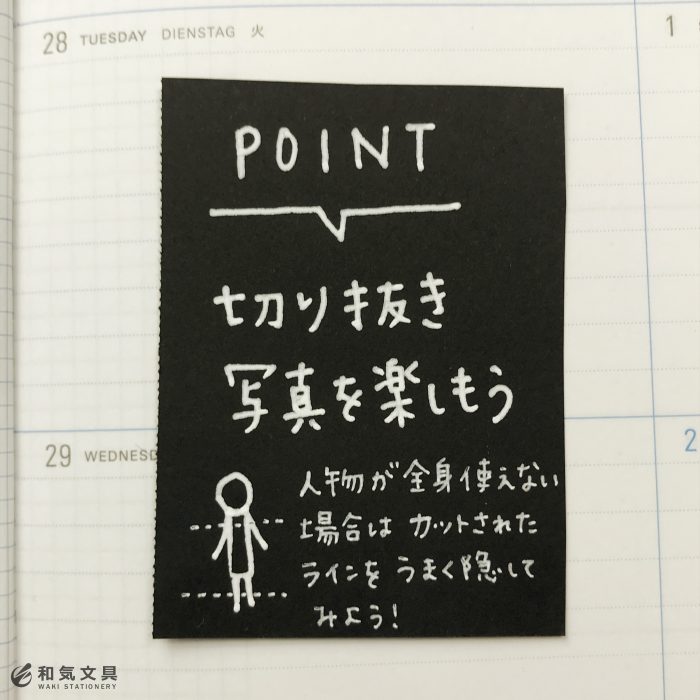 28 TUESDAY DIENSTAG 火
1
POINT
切り抜き
写真を楽しもう
29 WEDNESD
2
人物が全身使えない
場合は カットされた
ラインを うまく隠して
みよう!
和気文具
WAKI STATIONERY